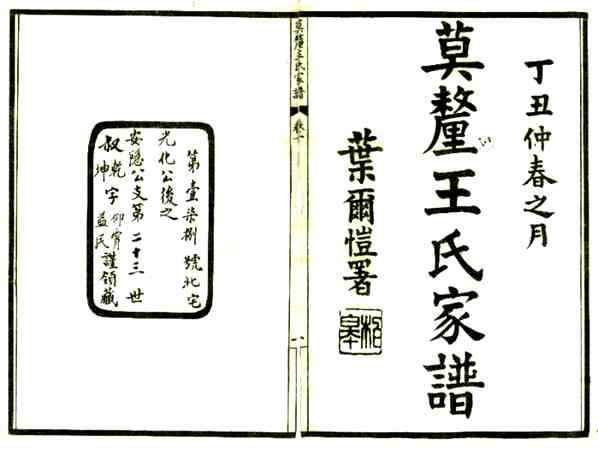 丁丑仲春之月
莫釐王氏家譜
葉爾愷署
柏皋
莫釐王氏家譜
卷十
一
第壹柒捌號北宅
光化公後之
安隱公支第二十三世
叔乾坤字益氏謹領藏